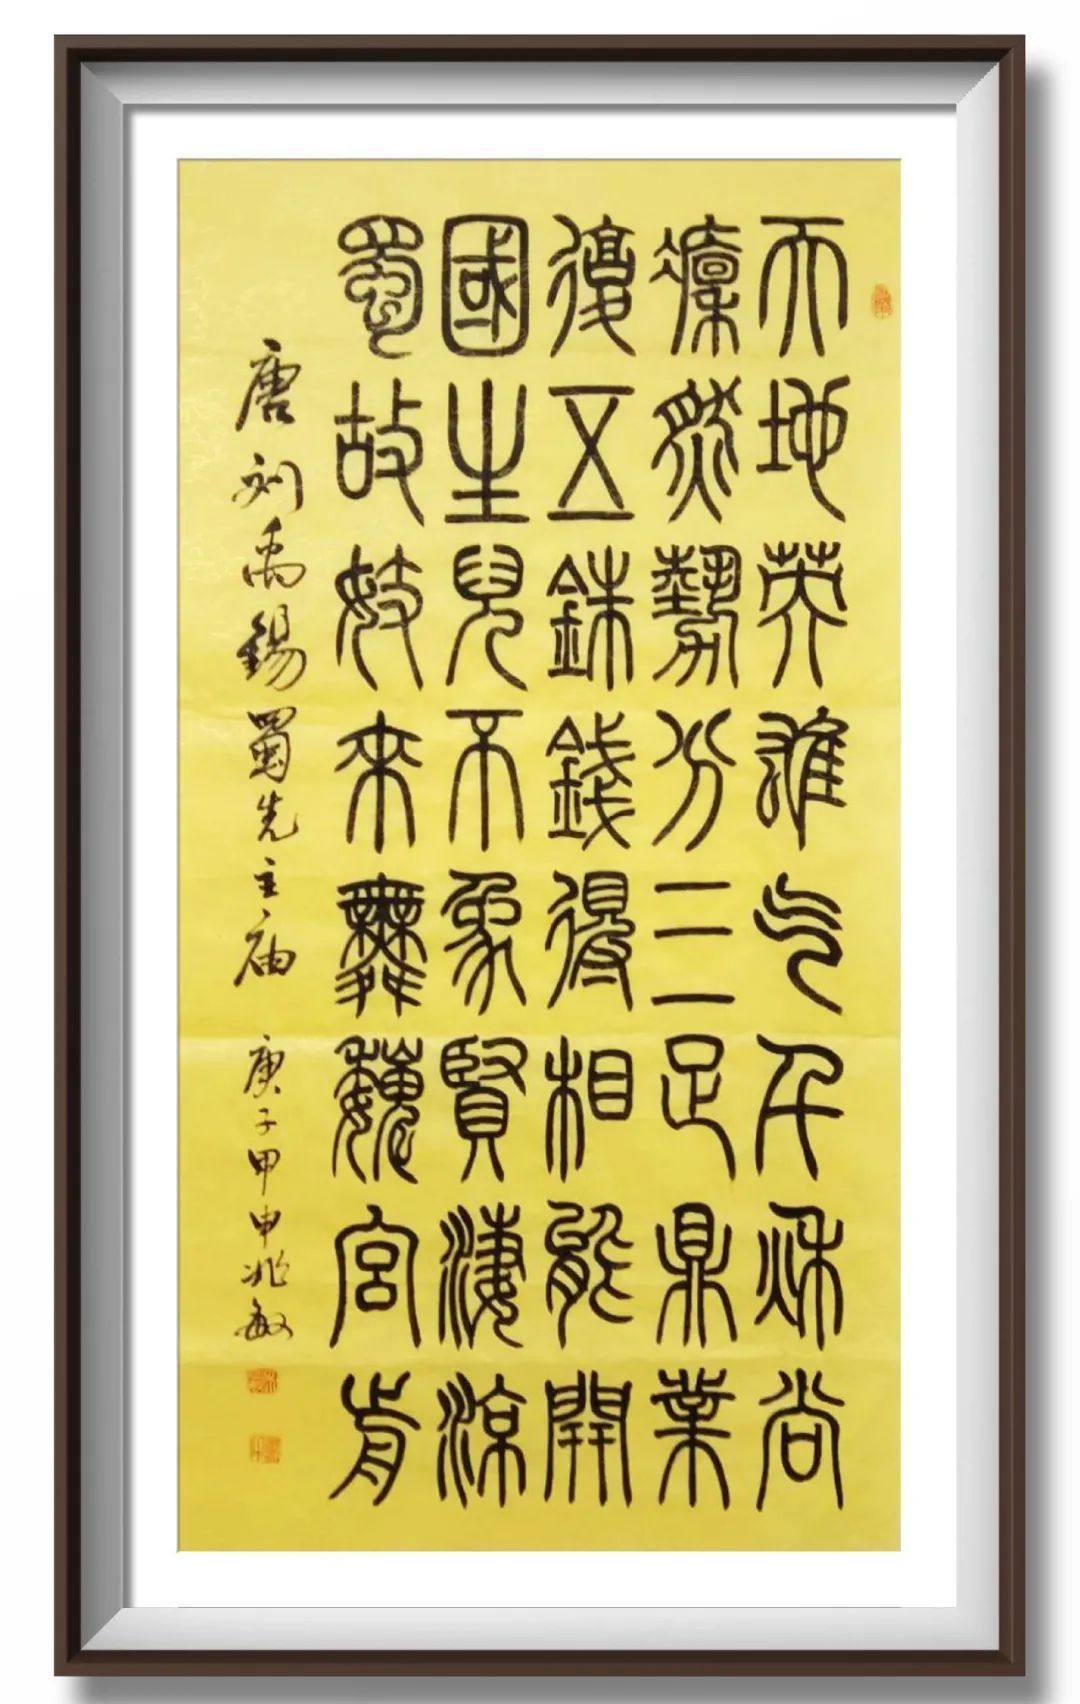 天地英雄气千秋尚
凜然勢分三足鼎業
復五銖錢得相能開
國生兒不象賢淒涼
蜀故妓來舞魏宮前
唐刘禹錫蜀先主庙 庚子甲申兆敏